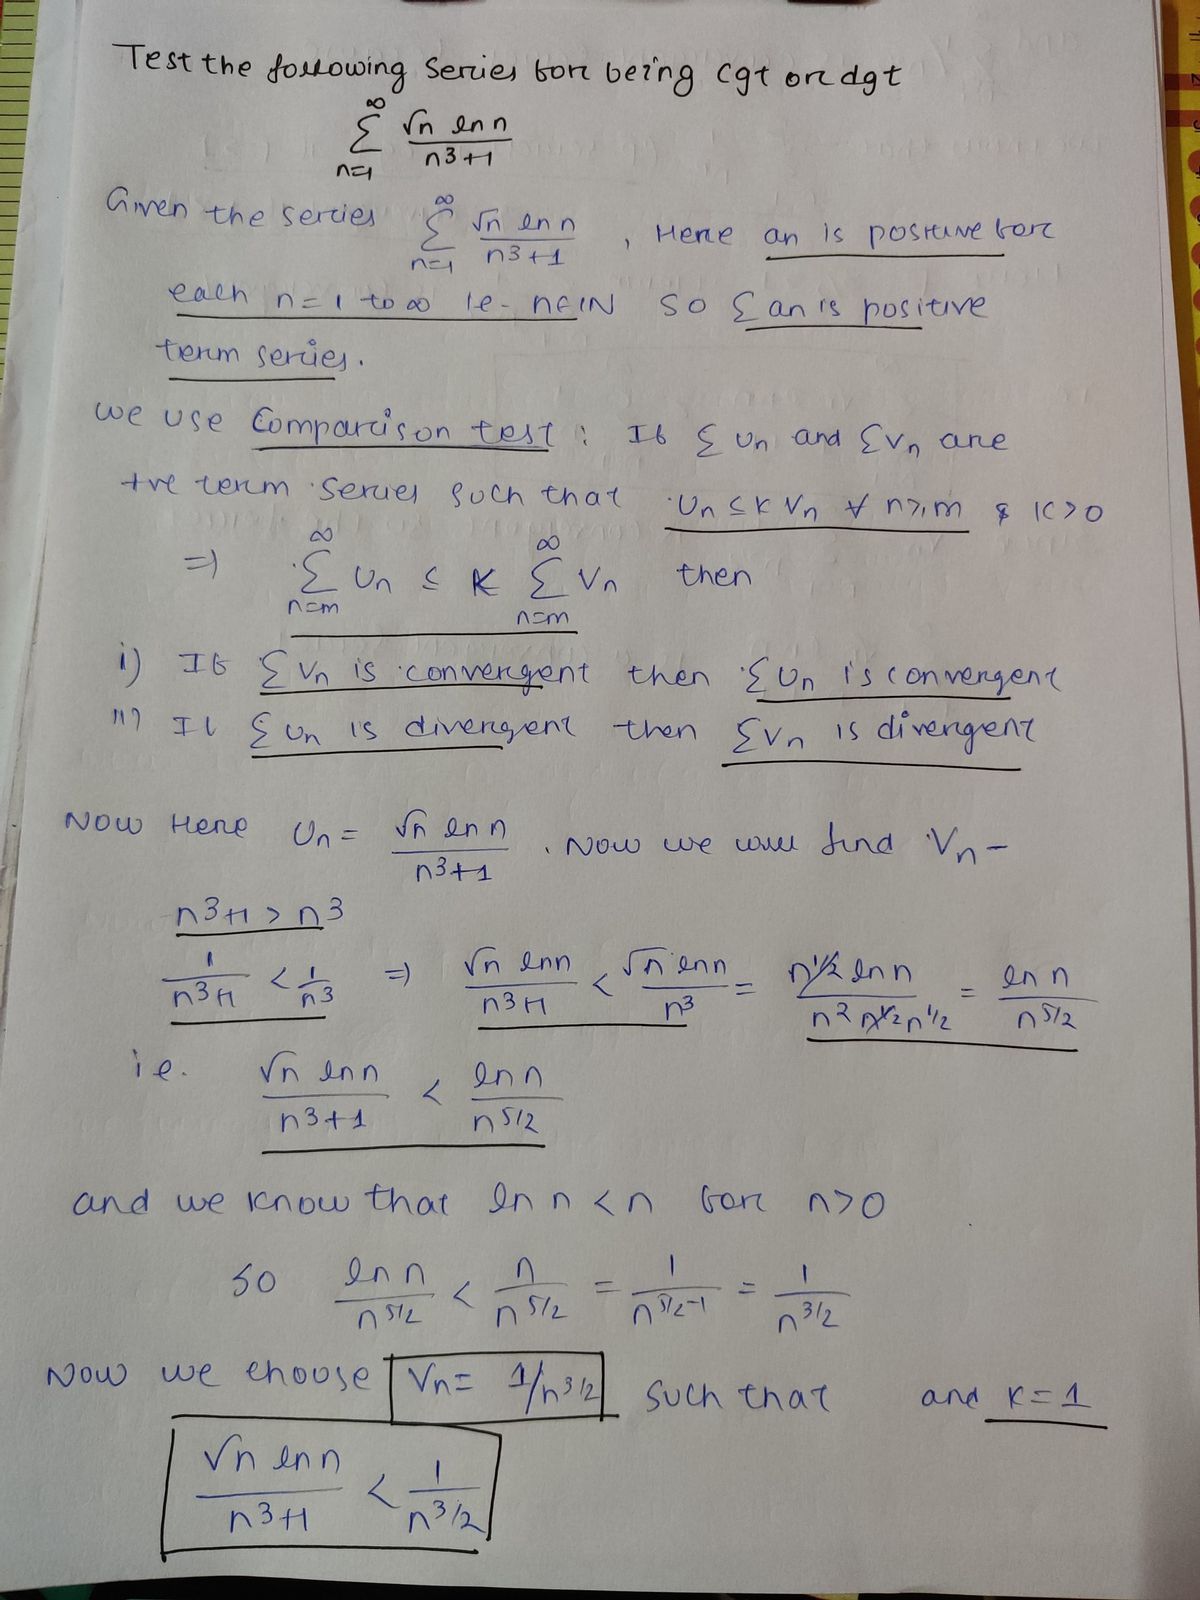 Test the following Series for being cgt or dgt
∞
Σ √n ln n / n3+1
n=1
Given the series ∞ Σ n=1 √n ln n / n3+1 , Here an is positive for
each n=1 to ∞ i.e- n∈IN so Σ an is positive
term series.
we use Comparison test : If Σ Un and Σ Vn are
+ve term series such that Un ≤ K Vn ∀ n≥m & K>0
⇒ ∞ Σ n=m Un ≤ K ∞ Σ n=m Vn then
i) If Σ Vn is convergent then Σ Un is convergent
ii) If Σ Un is divergent then Σ Vn is divergent
Now Here Un = √n ln n / n3+1 . Now we will find Vn -
n3+1 > n3
1/n3+1 < 1/n3 ⇒ √n ln n / n3+1 < √n ln n / n3 = n1/2 ln n / n2 n1/2 n1/2 = ln n / n5/2
i.e. √n ln n / n3+1 < ln n / n5/2
and we know that ln n < n for n>0
so ln n / n5/2 < n / n5/2 = 1 / n5/2-1 = 1 / n3/2
Now we choose Vn = 1/n3/2 such that and K=1
√n ln n / n3+1 < 1 / n3/2